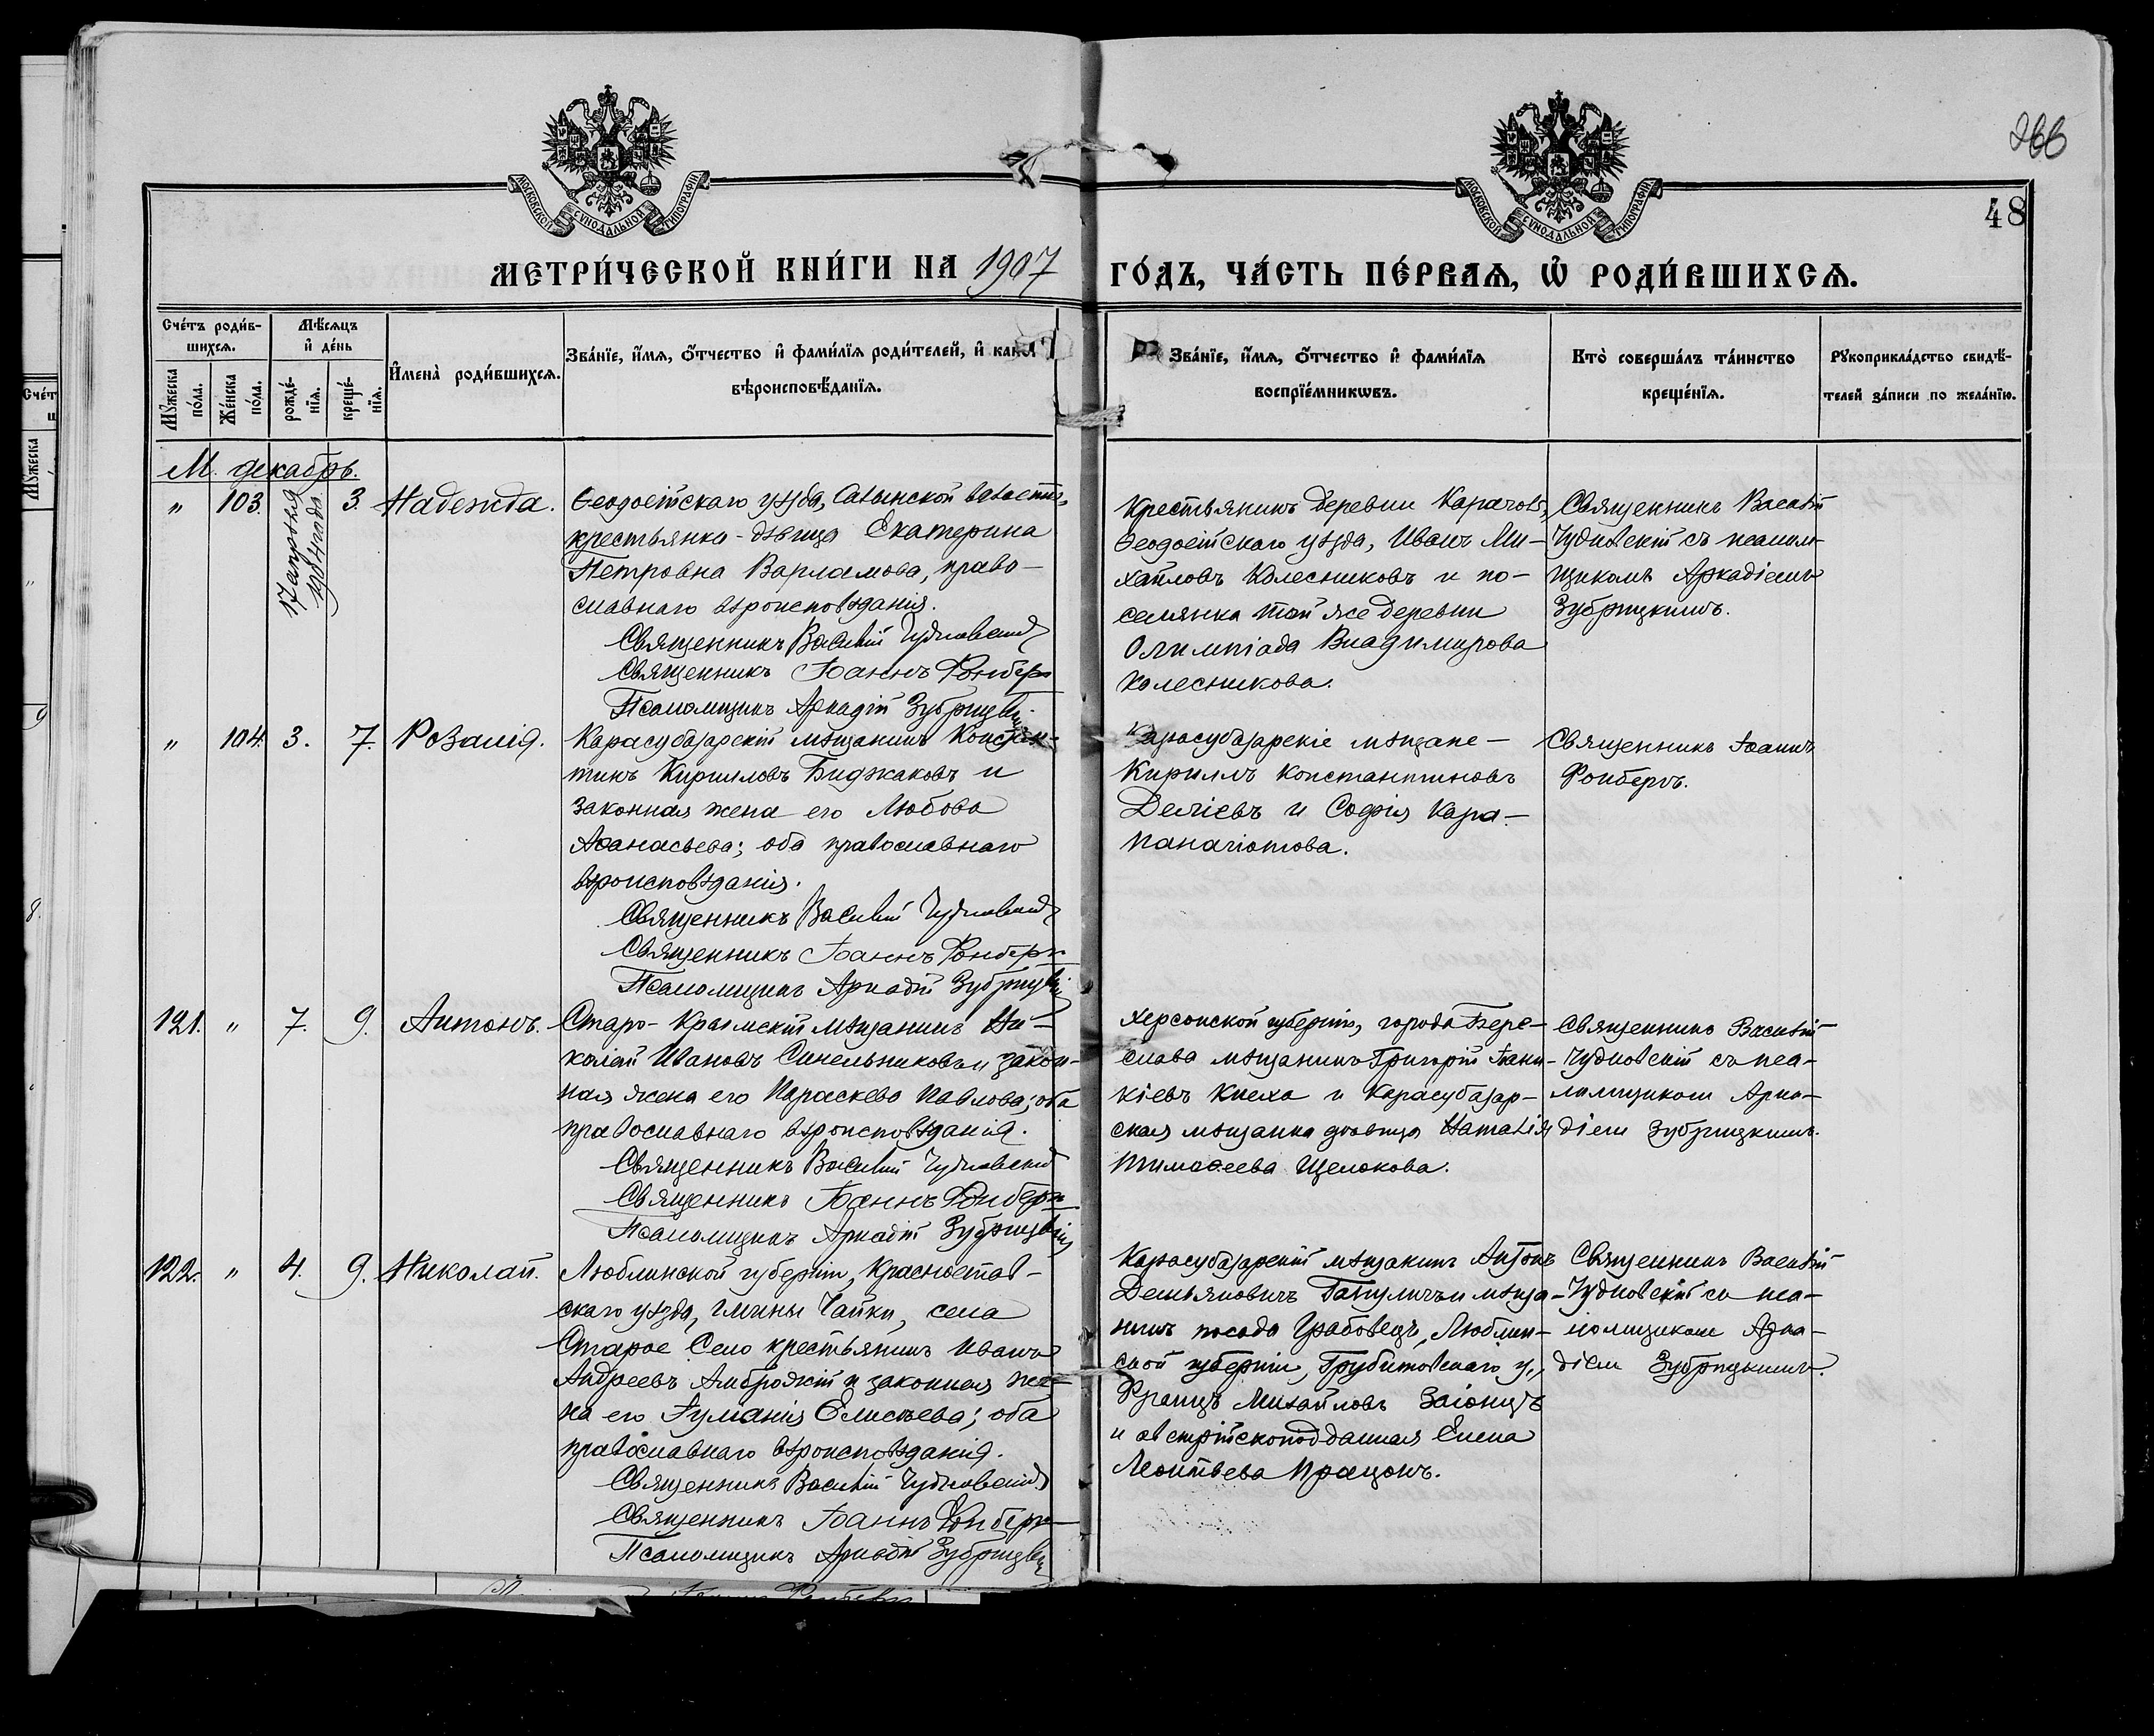 266
48
МОСКОВСКОЙ СѴНОДАЛЬНОЙ ТИПОГРАФІИ
МОСКОВСКОЙ СѴНОДАЛЬНОЙ ТИПОГРАФІИ
МЕТРИ́ЧЕСКОЙ КНИ́ГИ НА 1907
ГО́ДЪ, ЧА́СТЬ ПЕ́РВАѦ, Ѡ҆ РОДИ́ВШИХСѦ.
Сче́тъ роди́в-
шихсѧ.
Мꙋ́жеска по́ла.
Же́нска по́ла.
Мѣ́сѧцъ
и҆ де́нь
рожде́-
нїѧ.
креще́-
нїѧ.
И҆мена̀ роди́вшихсѧ.
Зва́нїе, и҆́мѧ, ѻ҆́тчество и҆ фами́лїѧ роди́телей, и҆ како́гѡ
вѣроисповѣ́данїѧ.
Зва́нїе, и҆́мѧ, ѻ҆́тчество и҆ фами́лїѧ
воспрїе́мникѡвъ.
Кто̀ соверша́лъ та́инство
креще́нїѧ.
Рꙋкоприкла́дство свидѣ́-
телей за́писи по жела́нїю.
М. декабрь.
" 103. 17 января 3. Надежда.
Ѳеодосійскаго уѣзда, Салынской волости,
крестьянка-дѣвица Екатерина
Петровна Варламова, право-
славнаго вѣроисповѣданія.
Священникъ Василій Чудновскій
Священникъ Іоаннъ Фонберг
Псаломщикъ Аркадій Зубрицкій
Крестьянинъ деревни Карачоль,
Ѳеодосійскаго уѣзда, Иванъ Ми-
хайловъ Колесниковъ и по-
селянка той же деревни
Олимпіада Владимирова
Колесникова.
Священникъ Василій
Чудновскій съ псалом-
щикомъ Аркадіемъ
Зубрицкимъ.
" 104. 3. 7. Розалія.
Карасубазарскій мѣщанинъ Констан-
тинъ Кирилловъ Биджаковъ и
законная жена его Любовь
Аѳанасьева; оба православнаго
вѣроисповѣданія.
Священникъ Василій Чудновскій
Священникъ Іоаннъ Фонберг
Псаломщикъ Аркадій Зубрицкій
Карасубазарскіе мѣщане-
Кириллъ Константиновъ
Деліевъ и Софія Кара-
панагіотова.
Священникъ Іоаннъ
Фонбергъ.
121. " 7. 9. Антонъ.
Старо-Крымскій мѣщанинъ Ни-
колай Ивановъ Синельниковъ и закон-
ная жена его Параскева Павлова; оба
православнаго вѣроисповѣданія.
Священникъ Василій Чудновскій
Священникъ Іоаннъ Фонберг
Псаломщикъ Аркадій Зубрицкій
Херсонской губерніи, города Бере-
слава мѣщанинъ Григорій Іоани-
кіевъ Кисха и Карасубазар-
ская мѣщанка дѣвица Наталія
Тимоѳеева Щелокова.
Священникъ Василій
Чудновскій съ пса-
ломщикомъ Арка-
діем Зубрицкимъ.
122. " 4. 9. Николай.
Люблинской губерніи, Красностав-
скаго уѣзда, гмины Чайки, села
Старое Село крестьянинъ Иванъ
Андреевъ Амброжій и законная же-
на его Іуліанія Елисѣева; оба
православнаго вѣроисповѣданія.
Священникъ Василій Чудновскій
Священникъ Іоаннъ Фонберг
Псаломщикъ Аркадій Зубрицкій
Карасубазарскій мѣщанинъ Антонъ
Демьяновичъ Гатуличъ и мѣща-
нинъ посада Грабовецъ, Люблин-
ской губерніи, Грубешовскаго у.,
Францъ Михайловъ Заіонцъ
и австрійскоподданная Елена
Леонтьева Працонъ.
Священникъ Василій
Чудновскій съ пса-
ломщикомъ Арка-
діем Зубрицкимъ.